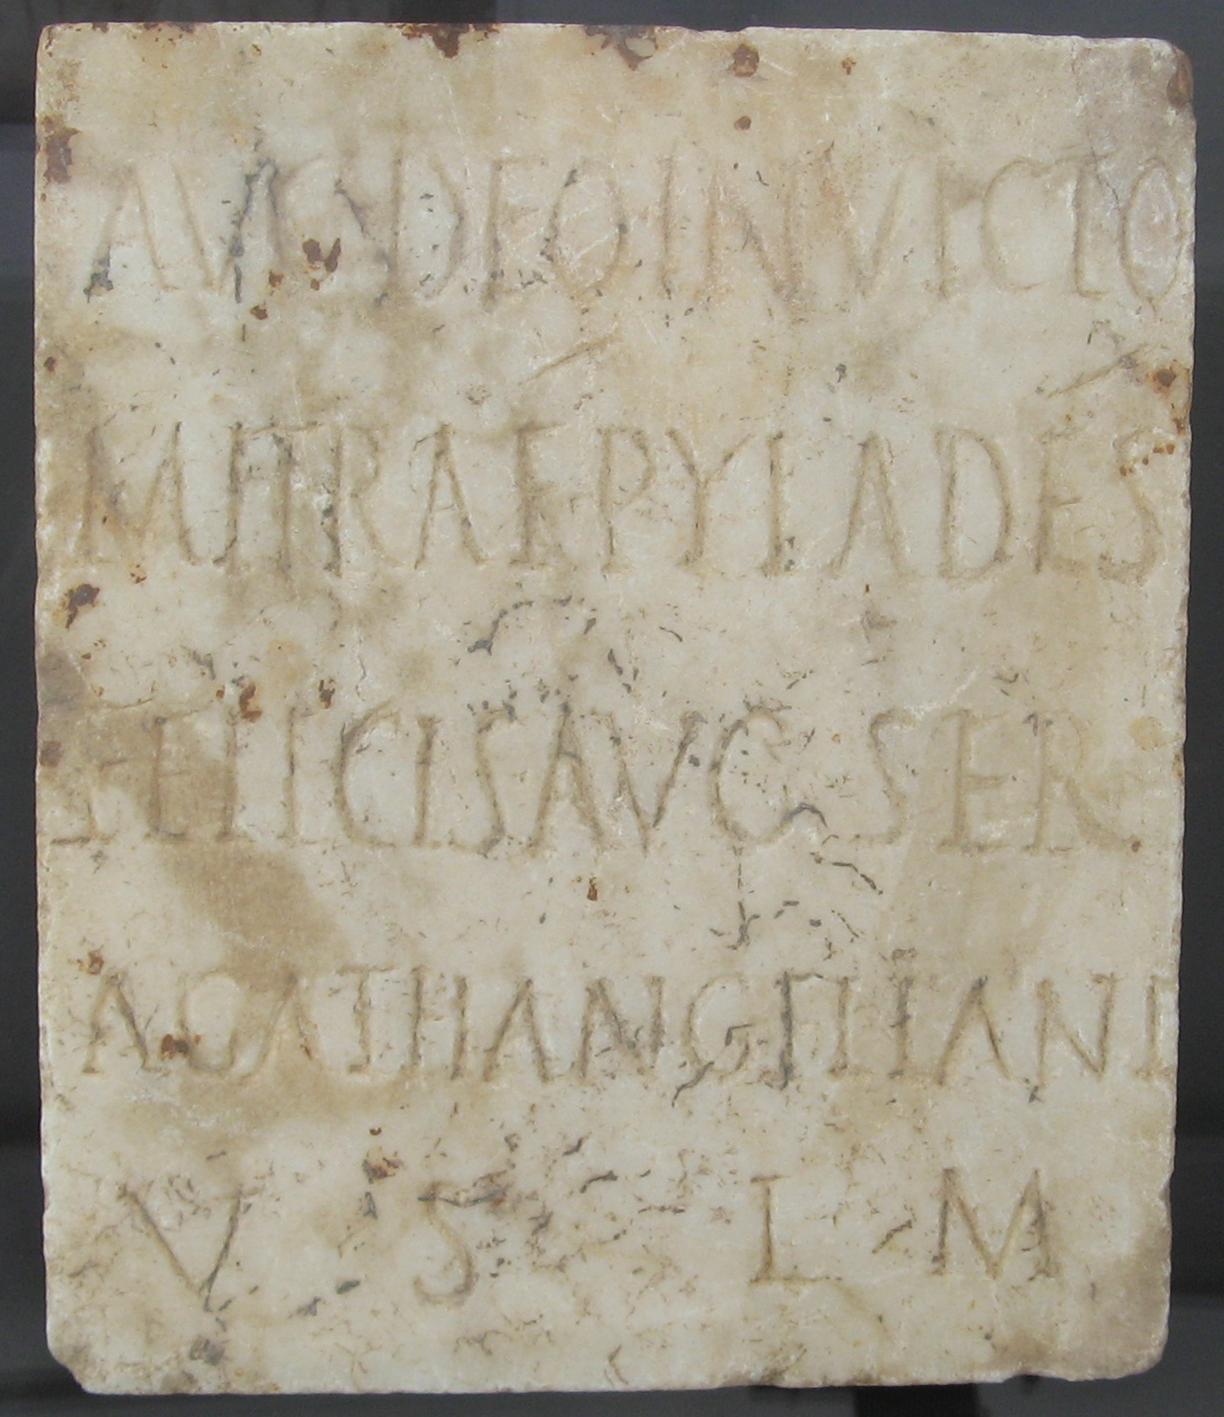 AVG DEO INVICTO
MITRAE PYLADES
FELICIS AVG SER
AGATHANGELIANI
V S L M